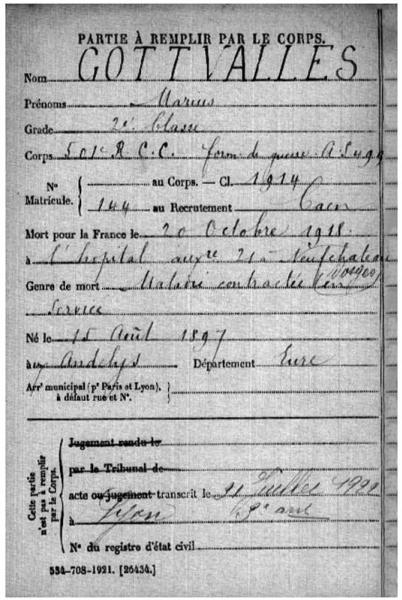 PARTIE À REMPLIR PAR LE CORPS.
Nom GOTTVALLES
Prénoms Marius
Grade 2e Classe
Corps 501e R. C. C. form de guerre A S 499
N° Matricule. { au Corps. — Cl. 1914
144 au Recrutement Caen
Mort pour la France le 20 Octobre 1918
à l'hopital auxre 21 à Neufchateau
(Vosges)
Genre de mort Maladie contractée en
Service
Né le 15 Août 1897
aux Andelys Département Eure
Arrt municipal (pr Paris et Lyon), à défaut rue et N°. }
Cette partie n'est pas à remplir par le Corps. {
Jugement rendu le
par le Tribunal de
acte ou jugement transcrit le 21 Juillet 1922
à Lyon 3e arr
N° du registre d'état civil
534-708-1921. [26434.]